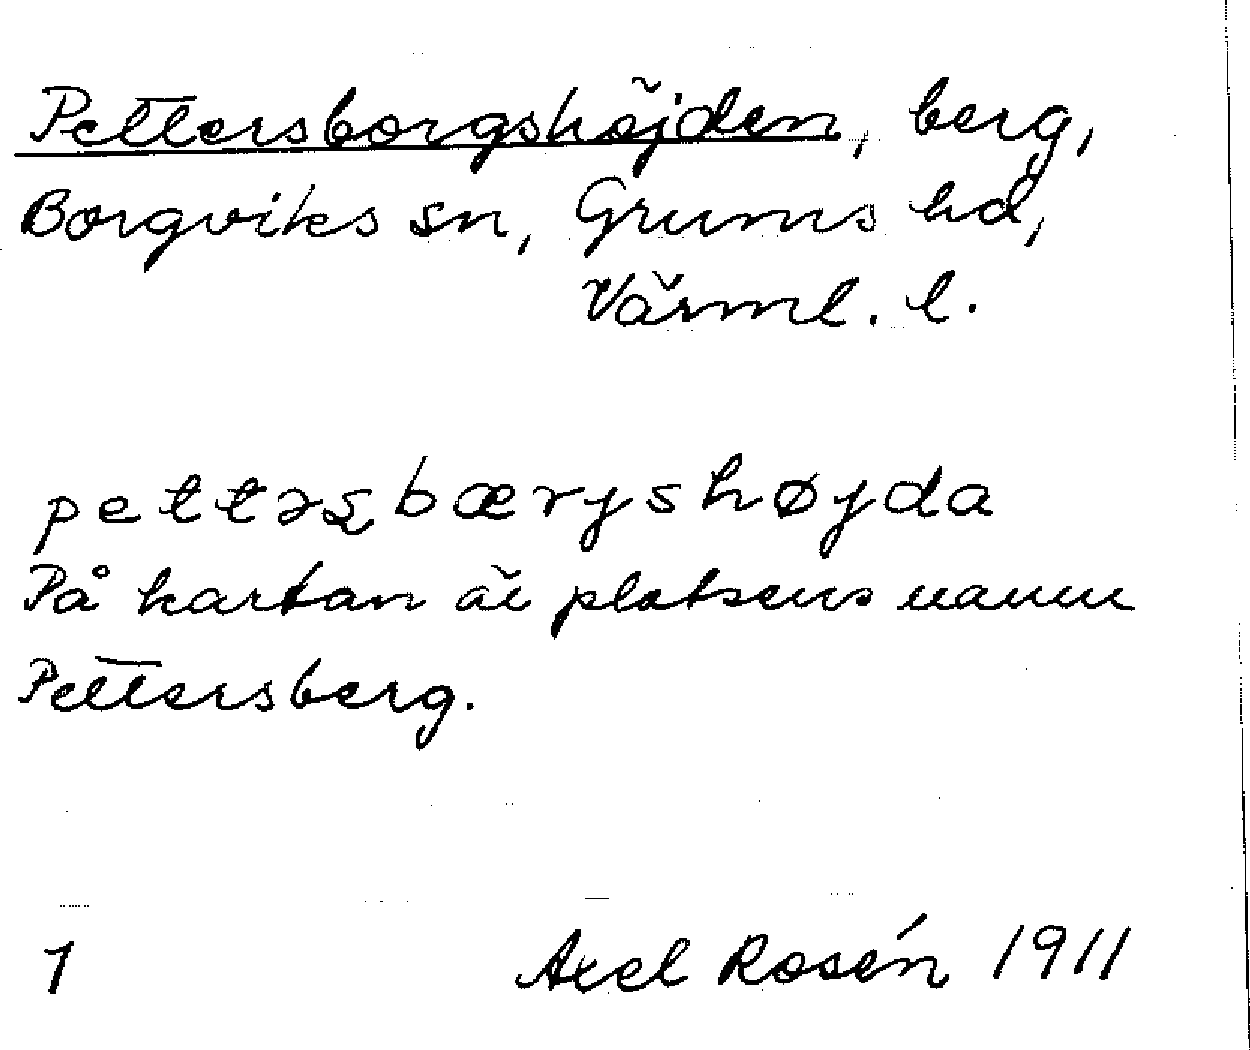 Pettersborgshöjden, berg,
Borgviks sn, Grums hd,
Värml. l.
pettəʂbæryshøyda
På kartan är platsens namn
Pettersberg.
1 Axel Rosén 1911